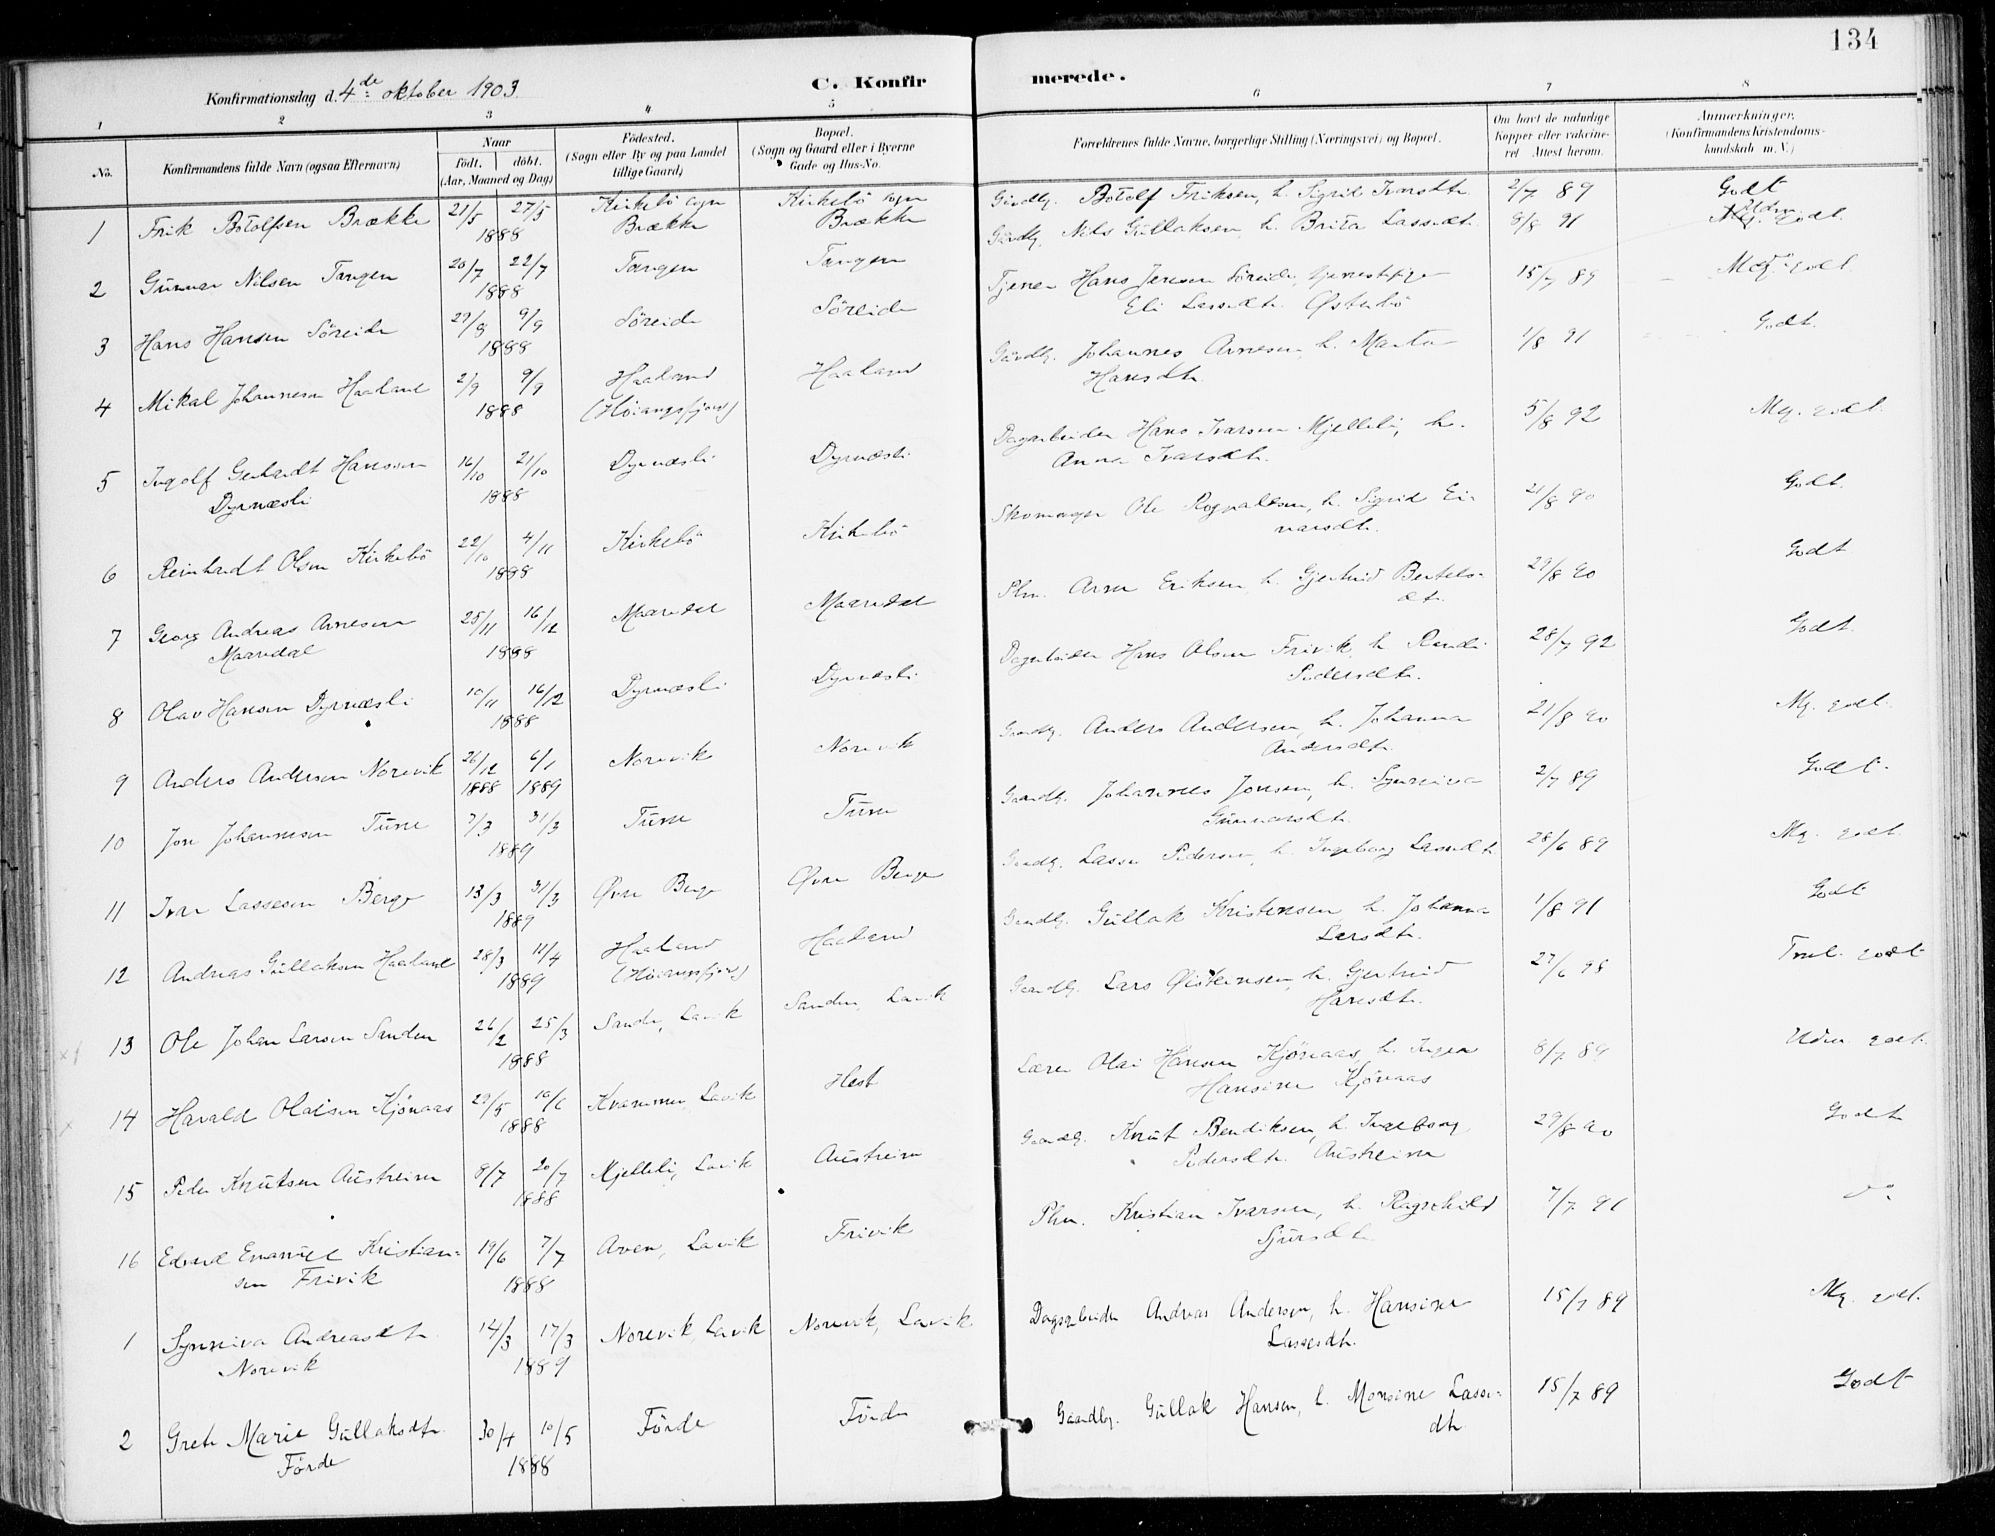 134
Konfirmationsdag d. 4de oktober 1903.
C. Konfir
merede.
1 2 3 4 5 6 7 8
No.
Konfirmandens fulde Navn (ogsaa Efternavn)
Naar
födt. döbt.
(Aar, Maaned og Dag)
Födested.
(Sogn eller By og paa Landet
tillige Gaard)
Bopæl.
(Sogn og Gaard eller i Byerne
Gade og Hus-No.
Forældrenes fulde Navne, borgerlige Stilling (Næringsvei) og Bopæl.
Om havt de naturlige
Kopper eller vakcine-
ret Attest herom.
Anmærkninger.
(Konfirmandens Kristendoms-
kundskab m. V.)
1 Erik Botolfsen Brække 21/5 27/5 Kirkebö sogn Kirkebö sogn Botolf Eriksen, h. Sigrid 2/7 89 Godt
1888 Brække Brække
2 Gunnar Nilsen Tangen 20/7 22/7 Tangen Tangen Nils Gullaksen, h. Brita Lassedt. 8/8 91 godt.
1888
3 Hans Hansen Söreide 29/8 9/9 Söreide Söreide Tjener Hans Jensen Söreide, 15/7 89 godt.
1888 Eli Lassedt. Østebö
4 Mikal Johannesen Haaland 2/9 9/9 Haaland Haaland Johannes Arnesen, h. Marta 1/8 91 Godt.
1888 (Höiangsfjord) Hansdt.
5 Ingolf Gerhardt Hanssen 16/10 21/10 Dyrnæsli Dyrnæsli Dagarbeider Hans Ivarsen Mjelleli, h. 5/8 92 Mg. godt.
Dyrnæsli 1888 Anna Ivarsdt.
6 Reinhardt Olsen Kirkebö 22/10 4/11 Kirkebö Kirkebö Skomager Ole Rognaldsen, h. Sigrid Ei- 21/8 90 Godt.
1888 narsdt.
7 Georg Andreas Arnesen 25/11 16/12 Maaredal Maaredal Plm. Arne Eriksen, h. Gjertrud Bertels- 29/8 90 Godt
Maaredal 1888 dt.
8 Olav Hansen Dyrnæsli 10/11 16/12 Dyrnæsli Dyrnæsli Dagarbeider Hans Olsen Frivik, h. Randi 28/7 92 Godt.
1888 Pedersdt.
9 Anders Andersen Norevik 26/12 6/1 Norevik Norevik Gaardbg. Anders Andersen, h. Johanna 21/8 90 Mg. godt.
1888 1889 Andersdt.
10 Jon Johannesen Tune 7/3 31/3 Tune Tune Gaardbg. Johannes Jonsen, h. Synneiva 2/7 89 Godt.
1889 Gunnarsdt.
11 Ivar Lassesen Berge 13/3 31/3 Øvre Berge Øvre Berge Gaardbg. Lasse Pedersen, h. Ingeborg Lassedt. 28/6 89 Mg. godt.
1889
12 Andreas Gullaksen Haaland 28/3 11/4 Haaland Haaland Gaardbg. Gullak Kristensen, h. Johanna 1/8 91 Godt
1889 (Höiangsfjord) Larsdt.
13 Ole Johan Larsen Sanden 26/2 25/3 Sande, Lavik Sanden, Lavik Gaardbg. Lars Øistensen, h. Gjertrud 27/6 98 godt
1888 Hansdt.
14 Harald Olaisen Kjönaas 29/5 10/6 Kvammen, Lavik Hest Lærer Olai Hansen Kjönaas, h. Inger 8/7 89 Udm. godt.
1888 Hansine Kjönaas
15 Peder Knutsen Austreim 8/7 20/7 Mjelleli, Lavik Austreim Gaardbg. Knut Bendiksen, h. Ingeborg 29/8 90 Godt
1888 Pedersdt. Austreim
16 Edvard Emanuel Kristian- 19/6 7/7 Aven, Lavik Frivik Plm. Kristian Ivarsen, h. Ragnhild 7/7 91 do
sen Frivik 1888 Sjursdt.
1 Synneiva Andreasdt. 14/3 17/3 Norevik, Lavik Norevik, Lavik Dagarbeider Andreas Andersen, h. Hansine 15/7 89 Mg. godt.
Norevik 1889 Lassesdt.
2 Grete Marie Gullaksdt. 30/4 10/5 Förde Förde Gaardbg. Gullak Hansen, h. Monsine Lasse- 15/7 89 Godt
Förde 1888 dt.